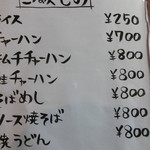 ごはんもの
イス ¥250
チャーハン ¥700
ムチチャーハン ¥800
生チャーハン ¥800
ばめし ¥800
ソース焼そば ¥800
焼うどん ¥800